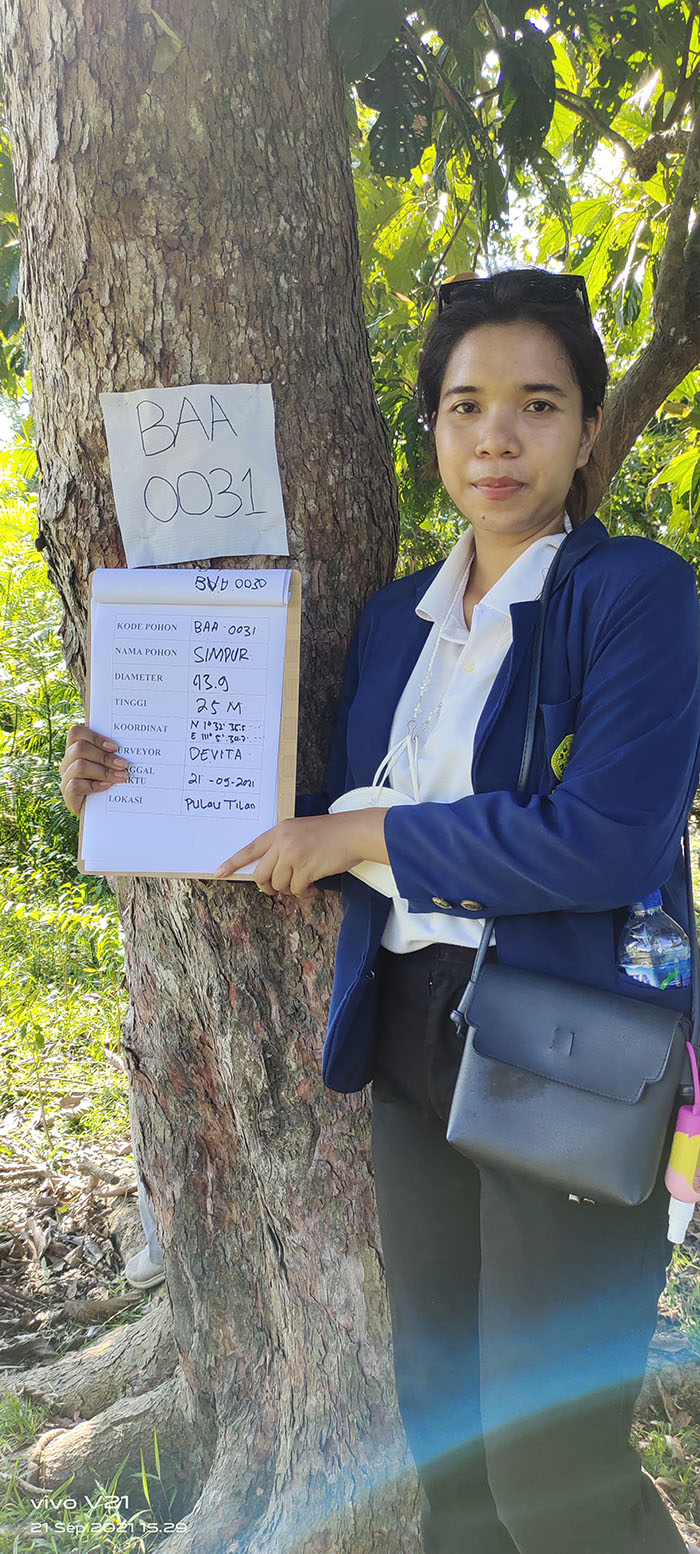 BAA
0031
BAA 0030
KODE POHON BAA 0031
NAMA POHON SIMPUR
DIAMETER 93.9
TINGGI 25 M
KOORDINAT N 1° 32' 35.5
E 111° 5' 30.7
SURVEYOR DEVITA
21-09-2021
LOKASI Pulau Tilan
vivo V21
21 Sep 2021 15.29